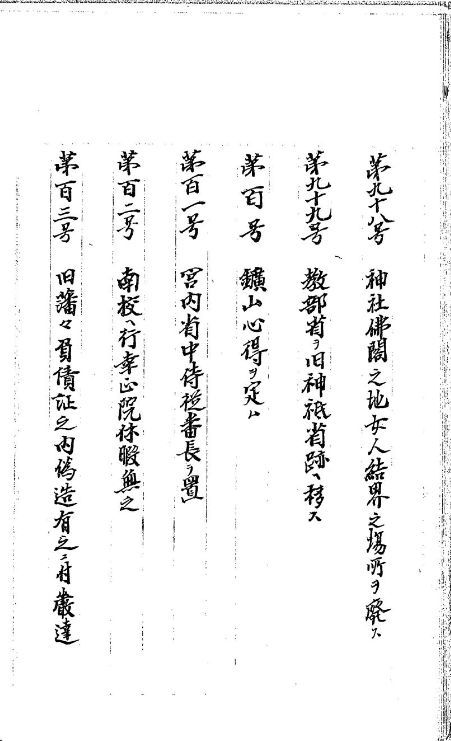 第九十八号 神社佛閣之地女人結界之場所ヲ廃ス
第九十九号 教部省ヲ旧神祇省跡ヘ移ス
第百号 鑛山心得ヲ定ム
第百一号 宮内省中侍従番長ヲ置
第百二号 南校ヘ行幸正院休暇無之
第百三号 旧藩々負債証之内偽造有之ニ付嚴達